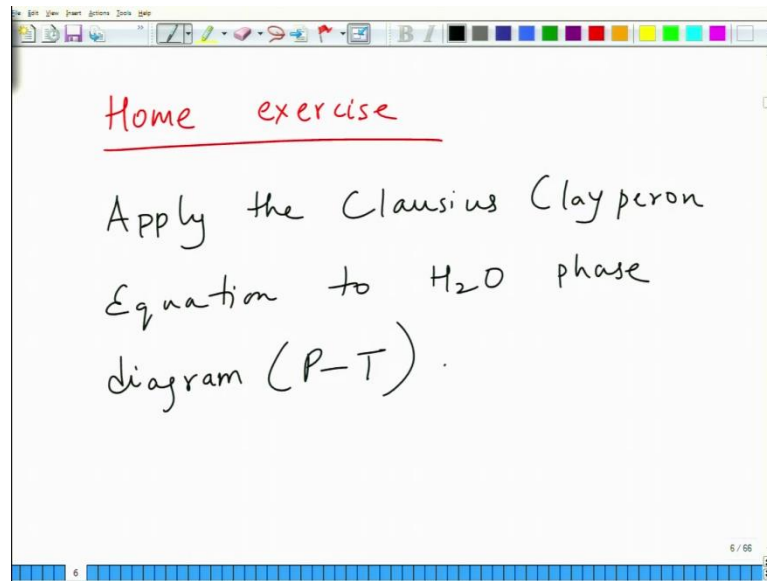 File Edit View Insert Actions Tools Help
B I
Home exercise
Apply the Clausius Clayperon
Equation to H₂O phase
diagram (P-T).
6 / 66
6